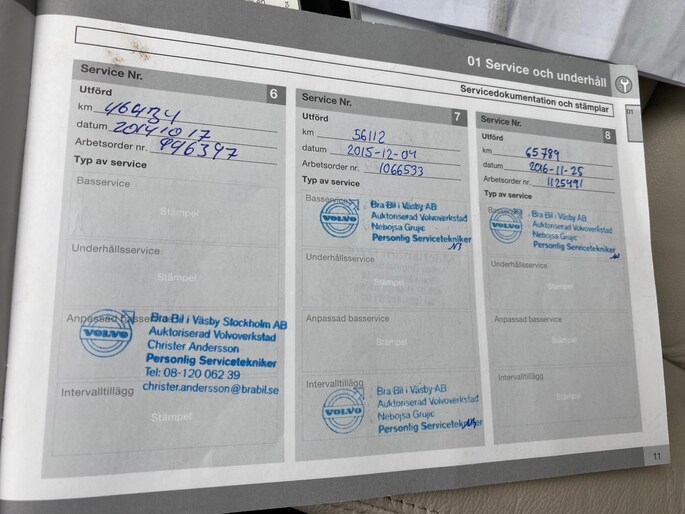 01 Service och underhåll
Servicedokumentation och stämplar
01
Service Nr. 6
Utförd
km 46434
datum 20141017
Arbetsorder nr. 996347
Typ av service
Basservice
Stämpel
Underhållsservice
Stämpel
Anpassad basservice
VOLVO
Bra Bil i Väsby Stockholm AB
Auktoriserad Volvoverkstad
Christer Andersson
Personlig Servicetekniker
Tel: 08-120 062 39
christer.andersson@brabil.se
Intervalltillägg
Stämpel
Service Nr. 7
Utförd
km 56112
datum 2015-12-04
Arbetsorder nr. 1066533
Typ av service
Basservice
VOLVO
Bra Bil i Väsby AB
Auktoriserad Volvoverkstad
Nebojsa Grujic
Personlig Servicetekniker
Underhållsservice
Stämpel
Anpassad basservice
Stämpel
Intervalltillägg
VOLVO
Bra Bil i Väsby AB
Auktoriserad Volvoverkstad
Nebojsa Grujic
Personlig Servicetekniker
Service Nr. 8
Utförd
km 65789
datum 2016-11-25
Arbetsorder nr. 1125491
Typ av service
VOLVO
Bra Bil i Väsby AB
Auktoriserad Volvoverkstad
Nebojsa Grujic
Personlig Servicetekniker
Underhållsservice
Stämpel
Anpassad basservice
Stämpel
Intervalltillägg
Stämpel
11